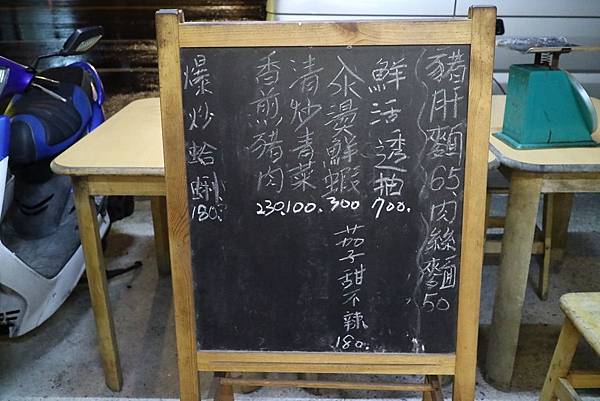 豬肝麵65.肉絲麵50
鮮活透抽700.
汆燙鮮蝦300
茄子甜不辣180.
清炒青菜100.
香煎豬肉230.
爆炒蛤蜊180.